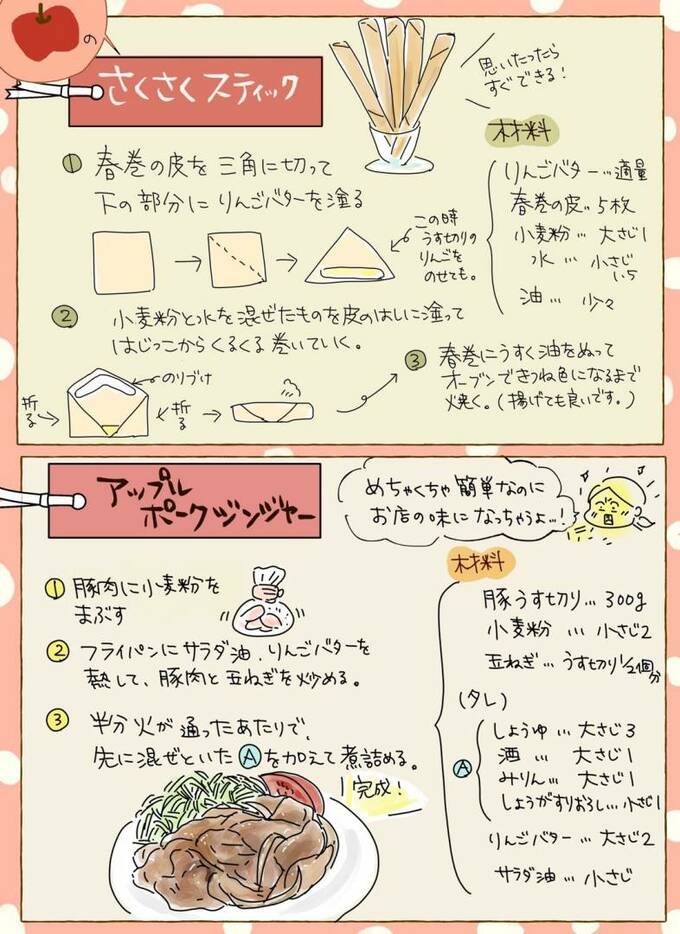 の
さくさくスティック
思いたったら
すぐできる!
材料
りんごバター…適量
春巻の皮…5枚
小麦粉…大さじ1
水…小さじ
1.5
油…少々
① 春巻の皮を三角に切って
下の部分にりんごバターを塗る
この時
うす切りの
りんごを
のせても。
② 小麦粉と水を混ぜたものを皮のはしに塗って
はじっこからくるくる巻いていく。
のりづけ
折る
折る
③ 春巻にうすく油をぬって
オーブンできつね色になるまで
焼く。(揚げても良いです。)
アップル
ポークジンジャー
めちゃくちゃ簡単なのに
お店の味になっちゃうよ…!
材料
豚うす切り…300g
小麦粉…小さじ2
玉ねぎ…うす切り1/2個分
(タレ)
Ⓐ
しょうゆ…大さじ3
酒…大さじ1
みりん…大さじ1
しょうがすりおろし…小さじ1
りんごバター…大さじ2
サラダ油…小さじ
① 豚肉に小麦粉を
まぶす
② フライパンにサラダ油、りんごバターを
熱して、豚肉と玉ねぎを炒める。
③ 半分火が通ったあたりで、
先に混ぜといたⒶを加えて煮詰める。
完成!